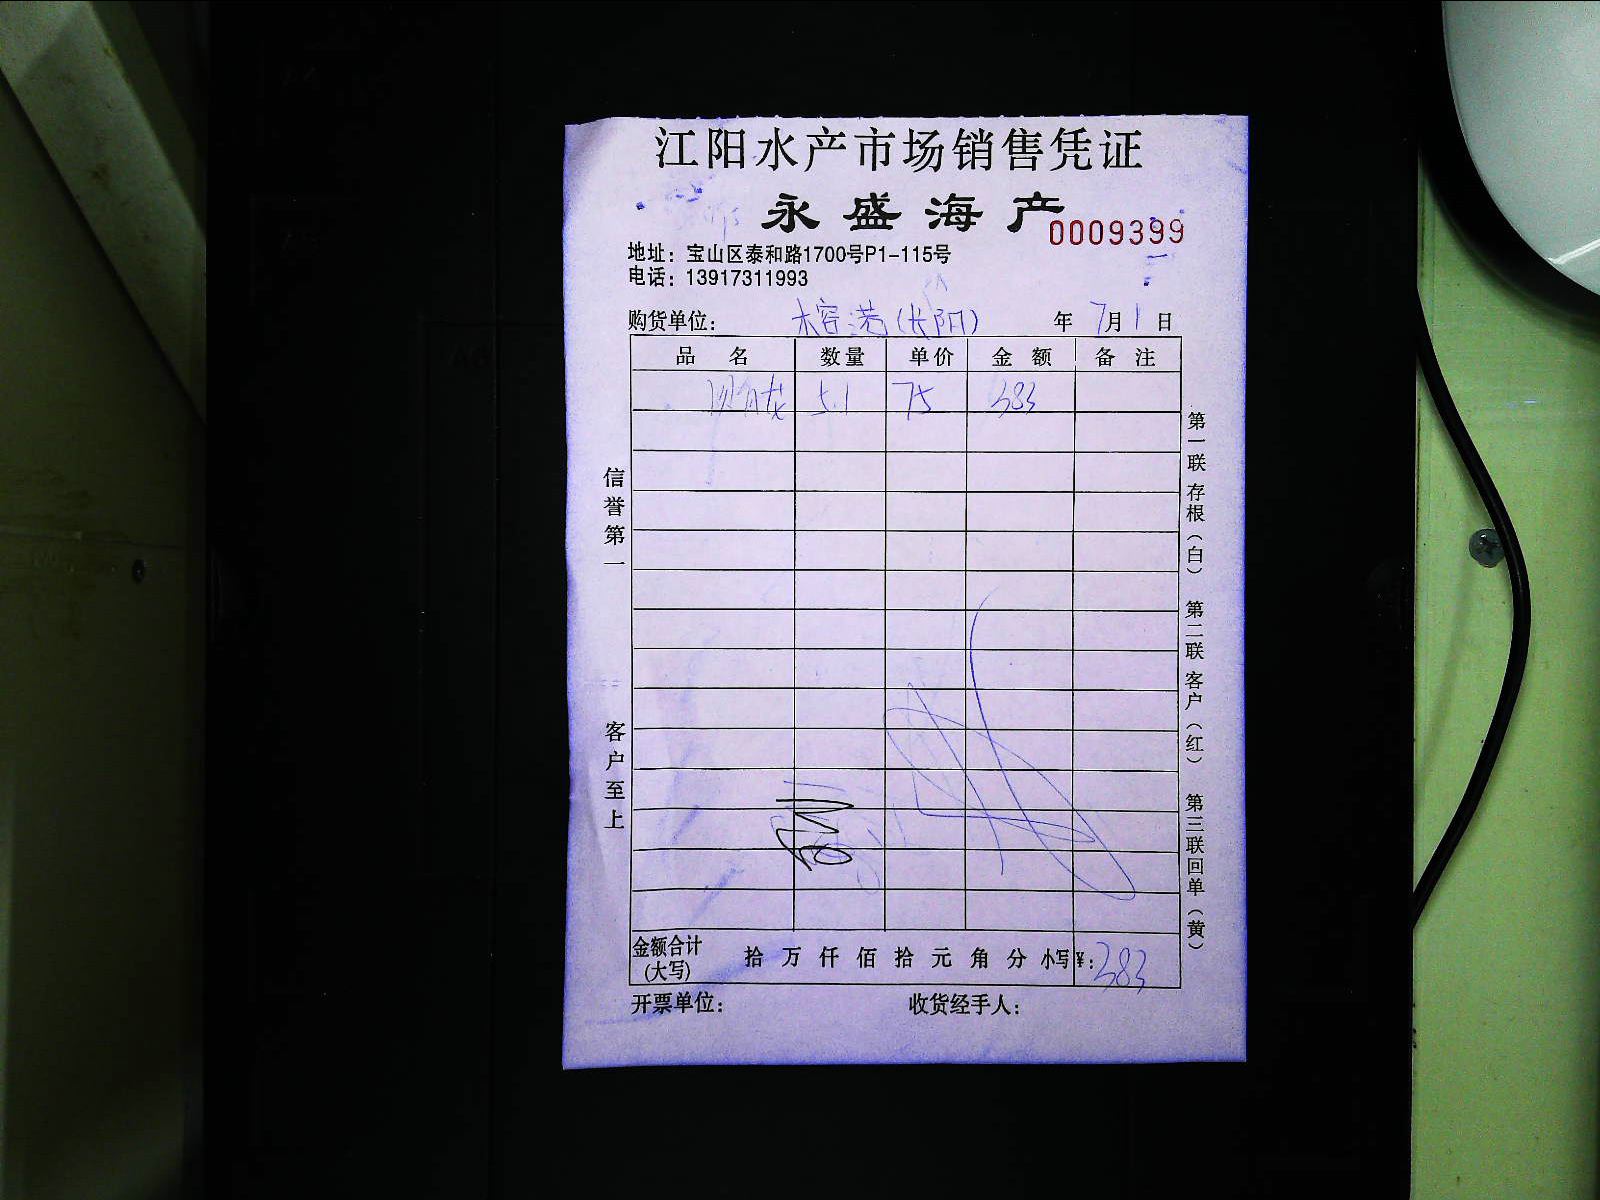 江阳水产市场销售凭证
永盛海产
0009399
地址：宝山区泰和路1700号P1-115号
电话：13917311993
购货单位： 榕港(长阳) 年 7月1日
品 名 数量 单价 金 额 备 注
5.1 75 383
信誉第一
客户至上
第一联 存根（白） 第二联 客户（红） 第三联 回单（黄）
金额合计(大写) 拾 万 仟 佰 拾 元 角 分 小写¥：383
开票单位： 收货经手人：